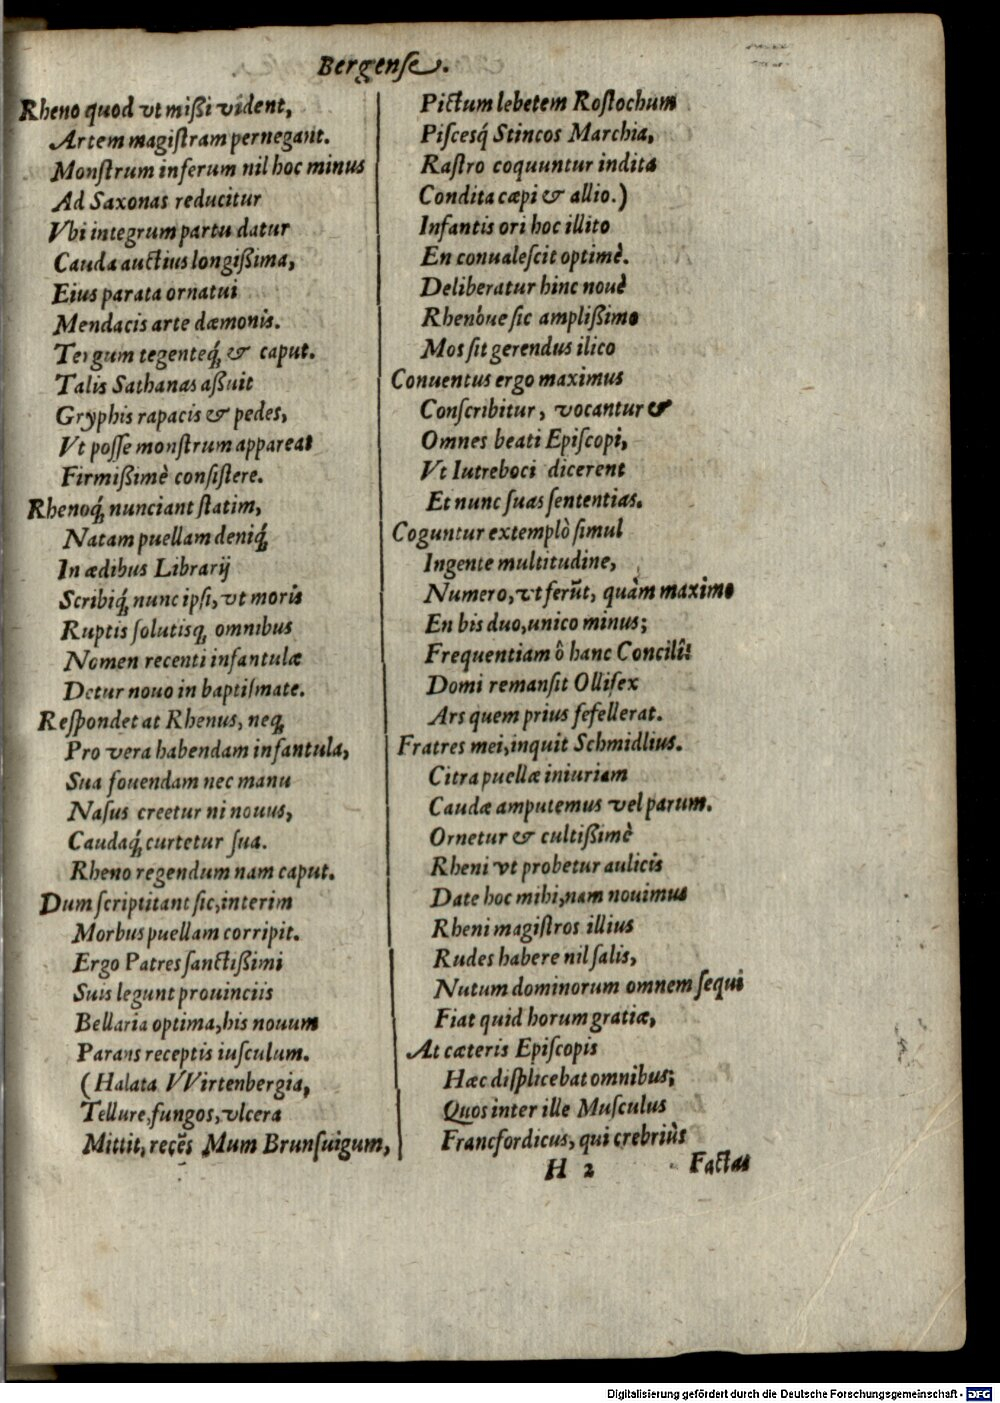 Bergense.
Rheno quod vt mißi vident,
Artem magiſtram pernegant.
Monſtrum inferum nil hoc minus
Ad Saxonas reducitur
Vbi integrum partu datur
Cauda auctius longißima,
Eius parata ornatui
Mendacis arte dæmonis.
Tergum tegenteq́; & caput.
Talis Sathanas aßuit
Gryphis rapacis & pedes,
Vt poſſe monſtrum appareat
Firmißimè conſiſtere.
Rhenoq́; nunciant ſtatim,
Natam puellam deniq́;
In ædibus Librarij
Scribiq́; nunc ipſi, vt moris
Ruptis ſolutisq; omnibus
Nomen recenti infantulæ
Detur nouo in baptiſmate.
Reſpondet at Rhenus, neq;
Pro vera habendam infantula,
Sua fouendam nec manu
Naſus creetur ni nouus,
Caudaq́; curtetur ſua.
Rheno regendum nam caput.
Dum ſcriptitant ſic, interim
Morbus puellam corripit.
Ergo Patres ſanctißimi
Suis legunt prouinciis
Bellaria optima, his nouum
Parans receptis iuſculum.
(Halata VVirtenbergia,
Tellure, fungos, vlcera
Mittit, recẽs Mum Brunſuigum,
Pictum lebetem Roſtochum
Piſcesq́; Stincos Marchia,
Raſtro coquuntur indita
Condita cæpi & allio.)
Infantis ori hoc illito
En conualeſcit optimè.
Deliberatur hinc nouè
Rhenóue ſic amplißimo
Mos ſit gerendus ilico
Conuentus ergo maximus
Conſcribitur, vocantur &
Omnes beati Epiſcopi,
Vt Iutreboci dicerent
Et nunc ſuas ſententias.
Coguntur extemplò ſimul
Ingente multitudine,
Numero, vt ferũt, quàm maximo
En bis duo, unico minus;
Frequentiam ô hanc Concilî!
Domi remanſit Ollifex
Ars quem prius fefellerat.
Fratres mei, inquit Schmidlius.
Citra puellæ iniuriam
Caudæ amputemus vel parum.
Ornetur & cultißimè
Rheni vt probetur aulicis
Date hoc mihi, nam nouimus
Rheni magiſtros illius
Rudes habere nil ſalis,
Nutum dominorum omnem ſequi
Fiat quid horum gratiæ,
At cæteris Epiſcopis
Hæc diſplicebat omnibus;
Quos inter ille Muſculus
Francfordicus, qui crebriùs
H 2
Factas
Digitalisierung gefördert durch die Deutsche Forschungsgemeinschaft - DFG